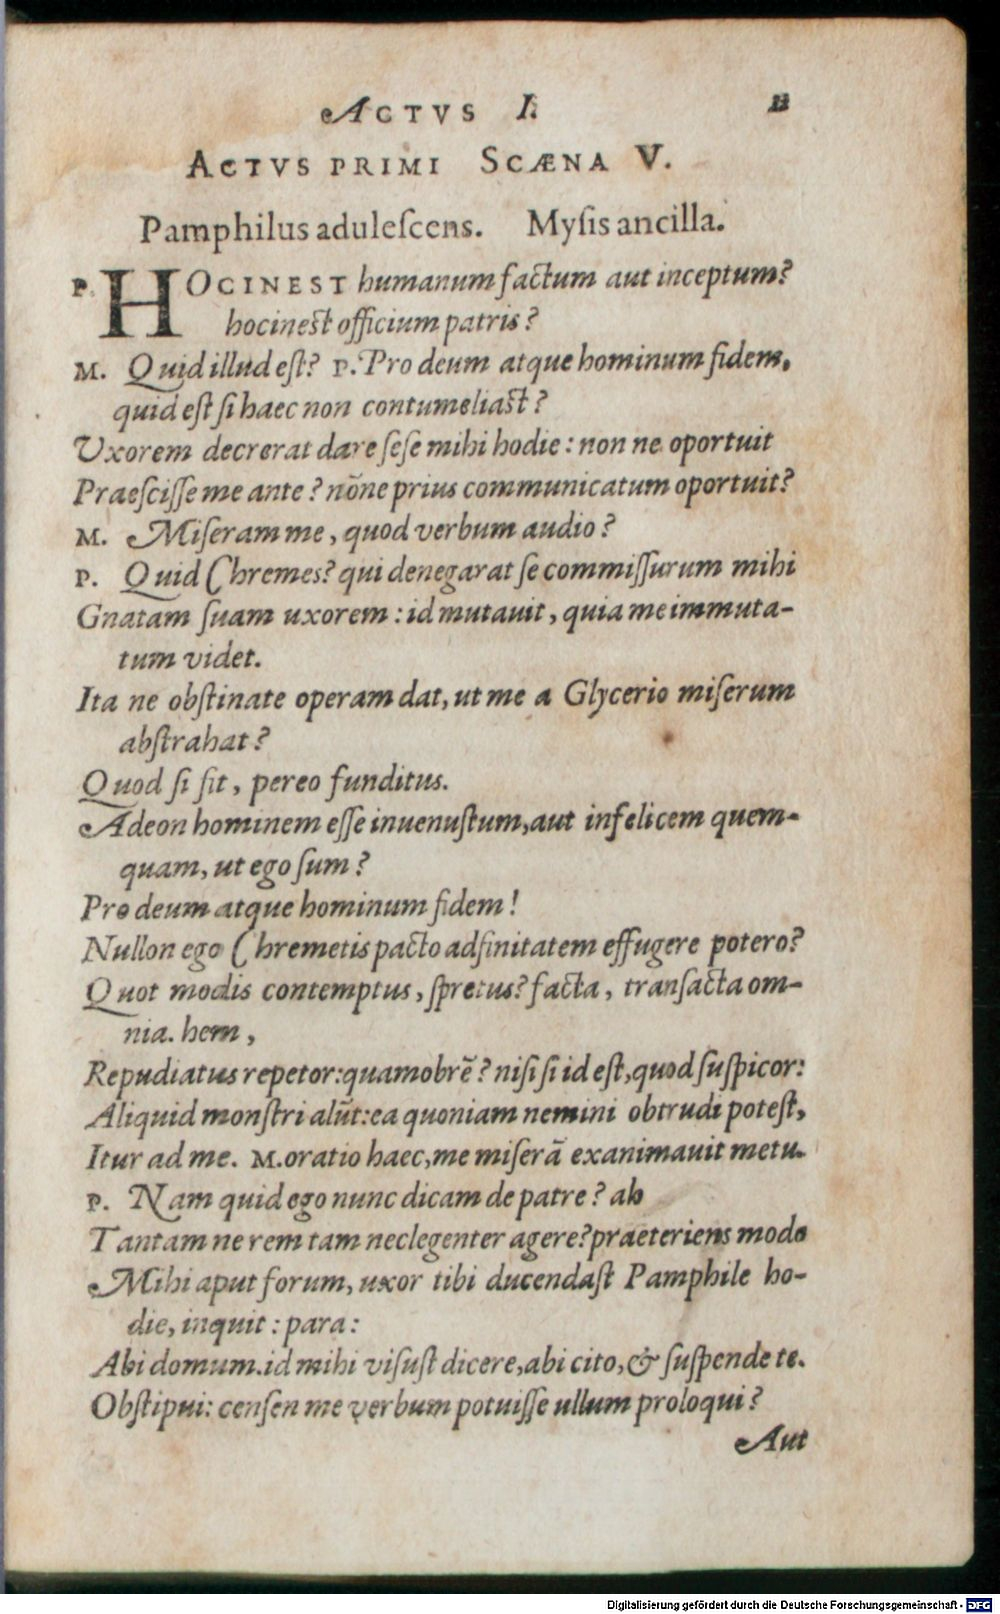 ACTVS I. 11
ACTVS PRIMI SCÆNA V.
Pamphilus aduleſcens. Myſis ancilla.
P. HOCINEST humanum factum aut inceptum?
hocineſt officium patris?
M. Quid illud eſt? P. Pro deum atque hominum fidem,
quid eſt ſi haec non contumeliaſt?
Vxorem decrerat dare ſeſe mihi hodie: non ne oportuit
Praeſciſſe me ante? nōne prius communicatum oportuit?
M. Miſeram me, quod verbum audio?
P. Quid Chremes? qui denegarat ſe commiſſurum mihi
Gnatam ſuam uxorem: id mutauit, quia me immuta-
tum videt.
Ita ne obſtinate operam dat, ut me a Glycerio miſerum
abſtrahat?
Quod ſi fit, pereo funditus.
Adeon hominem eſſe inuenuſtum, aut infelicem quem-
quam, ut ego ſum?
Pro deum atque hominum fidem!
Nullon ego Chremetis pacto adfinitatem effugere potero?
Quot modis contemptus, ſpretus? facta, tranſacta om-
nia. hem,
Repudiatus repetor: quamobrē? niſi ſi id eſt, quod ſuſpicor:
Aliquid monſtri alūt: ea quoniam nemini obtrudi poteſt,
Itur ad me. M. oratio haec, me miſerā exanimauit metu.
P. Nam quid ego nunc dicam de patre? ah
Tantam ne rem tam neclegenter agere? praeteriens modo
Mihi aput forum, uxor tibi ducendaſt Pamphile ho-
die, inquit: para:
Abi domum. id mihi viſuſt dicere, abi cito, & ſuſpende te.
Obſtipui: cenſen me verbum potuiſſe ullum proloqui?
Aut
Digitalisierung gefördert durch die Deutsche Forschungsgemeinschaft - DFG